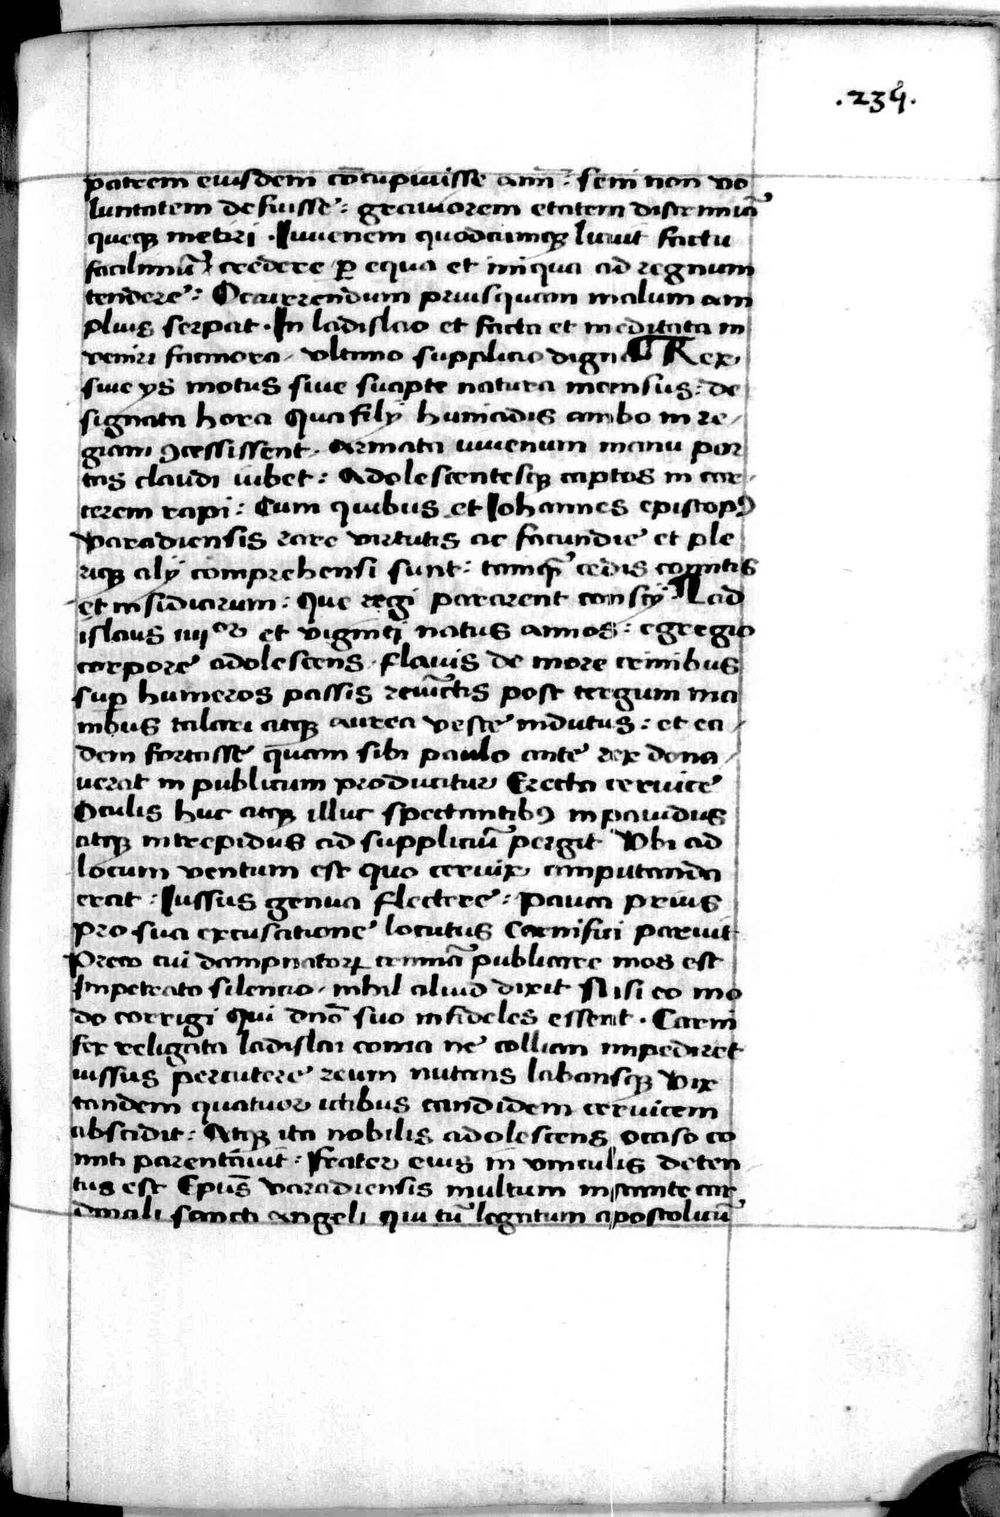 .234.
patrem eiusdem cōcupiuisse anīn : seni non vo
luntatem defuisse : grauiorem etatem discrimīa
queq; metiri . Iuuenem quodcumq; luuit factu
facilimū credere ꝑ equa et iniqua ad regnum
tendere : Occurrendum priusquam malum am
plius serpat . In ladislao et facta et meditata in
veniri facinora , vltimo supplicio digna Rex ,
siue ys motus siue suapte natura incensus : de
signata hora Qua filÿ huniadis ambo in re,
giam ꝯcessissent , Armata iuuenum manu por
tas claudi iubet : Adolescentesq; captos in car,
cerem rapi : Cum quibus et Iohannes episcopꝰ
varadiensis rare virtutis ac facundie et ple
riq; alÿ comprehensi sunt : tamq̄ cedis comitis
et insidiarum : Que regi pararent conscÿ Lad
islaus iiiiᵒʳ et viginti natus annos : egregio
corpore adolescens , flauis de more crinibus
sup̄ humeros passis reuīctis post tergum ma
nibus talari atq; aurea veste indutus : et ea,
dem fortasse quam sibi paulo ante rex dona,
uerat in publicum producitur Erecta ceruice
Oculis huc atq; illuc spectantibꝰ inpauidus
atq; intrepidus ad suppliciū pergit Vbi ad
locum ventum est quo ceruix amputanda
erat : Iussus genua flectere : pauca prius
pro sua excusatione locutus carnifici paruit
Preco cui dampnatoꝝ crimīa publicare mos est
Impetrato silencio , nihil aliud dixit Nisi eo mo
do corrigi Qui dnō suo infideles essent . Carni
fex religata ladislai coma ne collum impediret
iussus percutere reum nutans labansq; Vix
tandem quatuor ictibus candidem ceruicem
abscidit : Atq; ita nobilis adolescens ocaso co
miti parentauit : Frater eius in vinculis deten
tus est Ep̄us varadiensis multum instante car
dinali sancti Angeli Qui tū legatum apostolicū